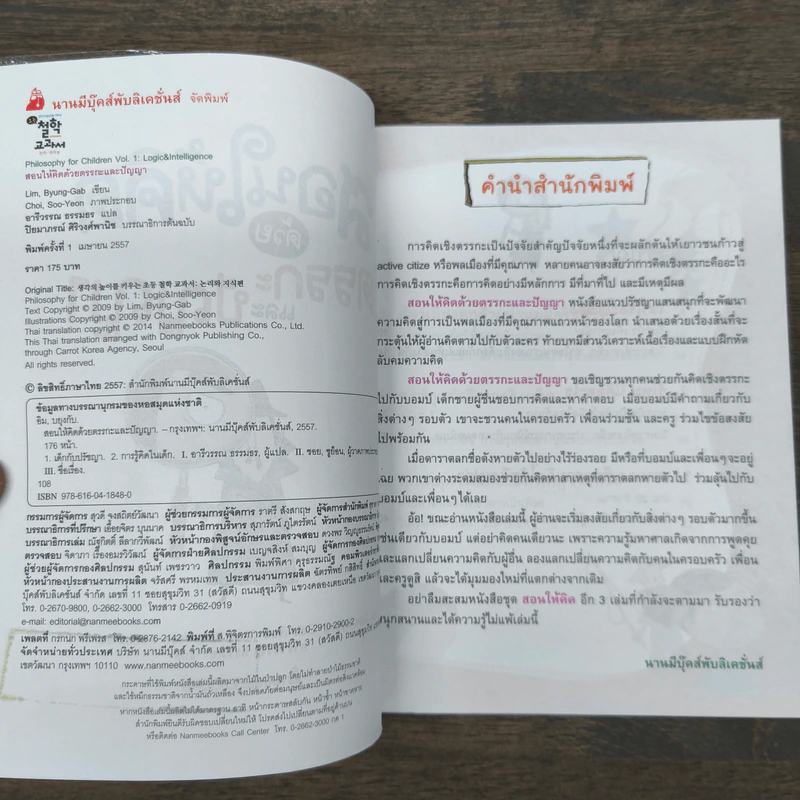 นานมีบุ๊คส์พับลิเคชั่นส์ จัดพิมพ์
철학
교과서
Philosophy for Children Vol. 1: Logic&Intelligence
สอนให้คิดด้วยตรรกะและปัญญา
Lim, Byung-Gab เขียน
Choi, Soo-Yeon ภาพประกอบ
อารีวรรณ ธรรมธร แปล
ปิยมาภรณ์ ศิริวงศ์พานิช บรรณาธิการต้นฉบับ
พิมพ์ครั้งที่ 1 เมษายน 2557
ราคา 175 บาท
Original Title: 생각의 높이를 키우는 초등 철학 교과서: 논리와 지식편
Philosophy for Children Vol. 1: Logic&Intelligence
Text Copyright © 2009 by Lim, Byung-Gab
Illustrations Copyright © 2009 by Choi, Soo-Yeon
Thai translation copyright © 2014 Nanmeebooks Publications Co., Ltd.
This Thai translation arranged with Dongnyok Publishing Co.,
through Carrot Korea Agency, Seoul
All rights reserved.
© ลิขสิทธิ์ภาษาไทย 2557: สำนักพิมพ์นานมีบุ๊คส์พับลิเคชั่นส์
ข้อมูลทางบรรณานุกรมของหอสมุดแห่งชาติ
อิม, บยุงกับ.
สอนให้คิดด้วยตรรกะและปัญญา. – กรุงเทพฯ: นานมีบุ๊คส์พับลิเคชั่นส์, 2557.
176 หน้า.
1. เด็กกับปรัชญา. 2. การรู้คิดในเด็ก. I. อารีวรรณ ธรรมธร, ผู้แปล. II. ชอย, ซูยือน, ผู้วาดภาพประกอบ
III. ชื่อเรื่อง.
108
ISBN 978-616-04-1848-0
กรรมการผู้จัดการ สุวดี จงสถิตย์วัฒนา ผู้ช่วยกรรมการผู้จัดการ ราตรี สังสกฤษ ผู้จัดการสำนักพิมพ์
บรรณาธิการที่ปรึกษา เอื้อยจิตร บุนนาค บรรณาธิการบริหาร สุภารัตน์ ภูไตรรัตน์ หัวหน้ากองบรรณาธิการ
บรรณาธิการเล่ม ณัฐกิตติ์ ลีลากวีพัฒน์ หัวหน้ากองพิสูจน์อักษรและตรวจสอบ ดวงพร
ตรวจสอบ จิดาภา เรืองอมรวิวัฒน์ ผู้จัดการฝ่ายศิลปกรรม เบญจสิงห์ สมบุญ ผู้จัดการกองศิลปกรรม
ผู้ช่วยผู้จัดการกองศิลปกรรม สุนันท์ เพชรวาว ศิลปกรรม พิมพ์พิศา คุรุธรรมณัฐ
หัวหน้ากองประสานงานการผลิต จรัสศรี พรหมเทพ ประสานงานการผลิต
บุ๊คส์พับลิเคชั่นส์ จำกัด เลขที่ 11 ซอยสุขุมวิท 31 (สวัสดี) ถนนสุขุมวิท แขวงคลองเตยเหนือ
โทร. 0-2670-9800, 0-2662-3000 โทรสาร 0-2662-0919
e-mail: editorial@nanmeebooks.com
เพลตที่ โทร. 0-2876-2142 พิมพ์ที่ ส.พิจิตรการพิมพ์ โทร. 0-2910-2900-2
จัดจำหน่ายทั่วประเทศ บริษัท นานมีบุ๊คส์ จำกัด เลขที่ 11 ซอยสุขุมวิท 31 (สวัสดี) ถนนสุขุมวิท
เขตวัฒนา กรุงเทพฯ 10110 www.nanmeebooks.com
กระดาษที่ใช้พิมพ์หนังสือเล่มนี้ผลิตมาจากไม้ในป่าปลูก โดยไม่ทำลายป่าไม้ธรรมชาติ
และใช้หมึกธรรมชาติจากน้ำมันถั่วเหลือง จึงปลอดภัยต่อมนุษย์และเป็นมิตรต่อสิ่งแวดล้อม
หากหนังสือเล่มนี้ผลิตไม่ได้มาตรฐาน อาทิ หน้ากระดาษสลับกัน หน้าซ้ำ หน้าขาดหาย
สำนักพิมพ์ยินดีรับผิดชอบเปลี่ยนใหม่ให้ โปรดส่งไปเปลี่ยนตามที่อยู่ด้านบน
หรือติดต่อ Nanmeebooks Call Center โทร. 0-2662-3000 กด 1
คำนำสำนักพิมพ์
การคิดเชิงตรรกะเป็นปัจจัยสำคัญปัจจัยหนึ่งที่จะผลักดันให้เยาวชนก้าวสู่
active citize หรือพลเมืองที่มีคุณภาพ หลายคนอาจสงสัยว่าการคิดเชิงตรรกะคืออะไร
การคิดเชิงตรรกะคือการคิดอย่างมีหลักการ มีที่มาที่ไป และมีเหตุมีผล
สอนให้คิดด้วยตรรกะและปัญญา หนังสือแนวปรัชญาแสนสนุกที่จะพัฒนา
ความคิดสู่การเป็นพลเมืองที่มีคุณภาพแถวหน้าของโลก นำเสนอด้วยเรื่องสั้นที่จะ
กระตุ้นให้ผู้อ่านคิดตามไปกับตัวละคร ท้ายบทมีส่วนวิเคราะห์เนื้อเรื่องและแบบฝึกหัด
ลับคมความคิด
สอนให้คิดด้วยตรรกะและปัญญา ขอเชิญชวนทุกคนช่วยกันคิดเชิงตรรกะ
ไปกับบอมบ์ เด็กชายผู้ชื่นชอบการคิดและหาคำตอบ เมื่อบอมบ์มีคำถามเกี่ยวกับ
สิ่งต่างๆ รอบตัว เขาจะชวนคนในครอบครัว เพื่อนร่วมชั้น และครู ร่วมไขข้อสงสัย
ไปพร้อมกัน
เมื่อดาราตลกชื่อดังหายตัวไปอย่างไร้ร่องรอย มีหรือที่บอมบ์และเพื่อนๆ จะอยู่
เฉย พวกเขาต่างระดมสมองช่วยกันคิดหาสาเหตุที่ดาราตลกหายตัวไป ร่วมลุ้นไปกับ
บอมบ์และเพื่อนๆ ได้เลย
อ้อ! ขณะอ่านหนังสือเล่มนี้ ผู้อ่านจะเริ่มสงสัยเกี่ยวกับสิ่งต่างๆ รอบตัวมากขึ้น
เช่นเดียวกับบอมบ์ แต่อย่าคิดคนเดียวนะ เพราะความรู้มหาศาลเกิดจากการพูดคุย
และแลกเปลี่ยนความคิดกับผู้อื่น ลองแลกเปลี่ยนความคิดกับคนในครอบครัว เพื่อน
และครูดูสิ แล้วจะได้มุมมองใหม่ที่แตกต่างจากเดิม
อย่าลืมสะสมหนังสือชุด สอนให้คิด อีก 3 เล่มที่กำลังจะตามมา รับรองว่า
สนุกสนานและได้ความรู้ไม่แพ้เล่มนี้
นานมีบุ๊คส์พับลิเคชั่นส์